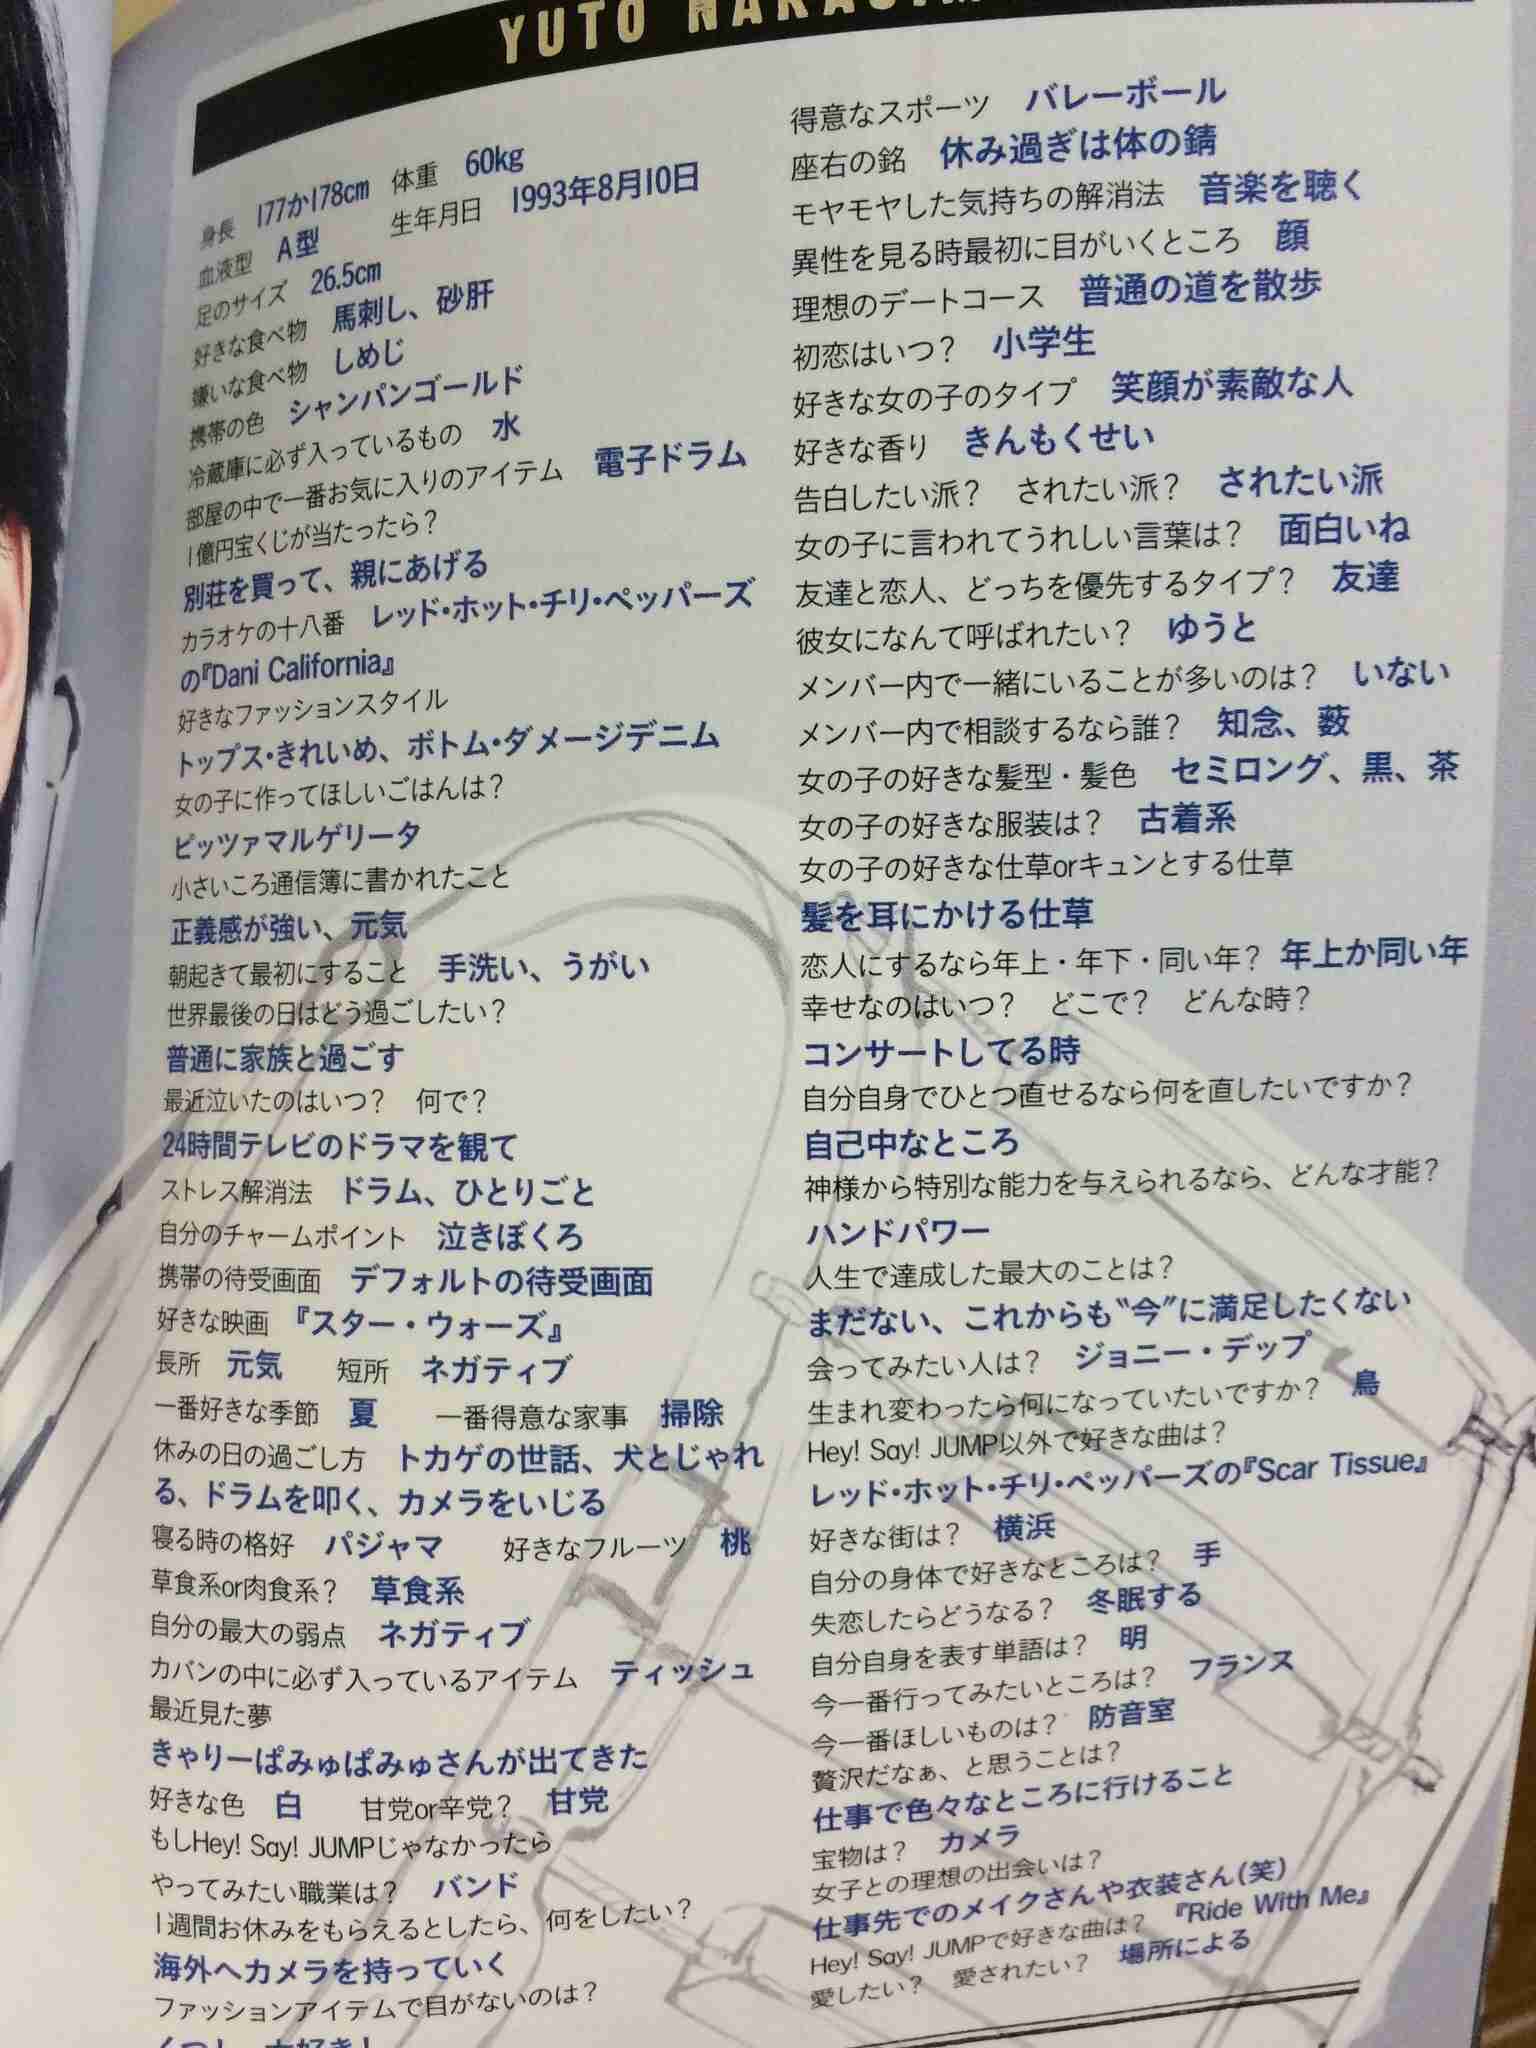 YUTO
身長 177か178cm 体重 60kg
血液型 A型 生年月日 1993年8月10日
足のサイズ 26.5cm
好きな食べ物 馬刺し、砂肝
嫌いな食べ物 しめじ
携帯の色 シャンパンゴールド
冷蔵庫に必ず入っているもの 水
部屋の中で一番お気に入りのアイテム 電子ドラム
1億円宝くじが当たったら？
別荘を買って、親にあげる
カラオケの十八番 レッド・ホット・チリ・ペッパーズ
の『Dani California』
好きなファッションスタイル
トップス・きれいめ、ボトム・ダメージデニム
女の子に作ってほしいごはんは？
ピッツァマルゲリータ
小さいころ通信簿に書かれたこと
正義感が強い、元気
朝起きて最初にすること 手洗い、うがい
世界最後の日はどう過ごしたい？
普通に家族と過ごす
最近泣いたのはいつ？ 何で？
24時間テレビのドラマを観て
ストレス解消法 ドラム、ひとりごと
自分のチャームポイント 泣きぼくろ
携帯の待受画面 デフォルトの待受画面
好きな映画 『スター・ウォーズ』
長所 元気 短所 ネガティブ
一番好きな季節 夏 一番得意な家事 掃除
休みの日の過ごし方 トカゲの世話、犬とじゃれ
る、ドラムを叩く、カメラをいじる
寝る時の格好 パジャマ 好きなフルーツ 桃
草食系or肉食系？ 草食系
自分の最大の弱点 ネガティブ
カバンの中に必ず入っているアイテム ティッシュ
最近見た夢
きゃりーぱみゅぱみゅさんが出てきた
好きな色 白 甘党or辛党？ 甘党
もしHey! Say! JUMPじゃなかったら
やってみたい職業は？ バンド
1週間お休みをもらえるとしたら、何をしたい？
海外へカメラを持っていく
ファッションアイテムで目がないのは？
得意なスポーツ バレーボール
座右の銘 休み過ぎは体の錆
モヤモヤした気持ちの解消法 音楽を聴く
異性を見る時最初に目がいくところ 顔
理想のデートコース 普通の道を散歩
初恋はいつ？ 小学生
好きな女の子のタイプ 笑顔が素敵な人
好きな香り きんもくせい
告白したい派？ されたい派？ されたい派
女の子に言われてうれしい言葉は？ 面白いね
友達と恋人、どっちを優先するタイプ？ 友達
彼女になんて呼ばれたい？ ゆうと
メンバー内で一緒にいることが多いのは？ いない
メンバー内で相談するなら誰？ 知念、薮
女の子の好きな髪型・髪色 セミロング、黒、茶
女の子の好きな服装は？ 古着系
女の子の好きな仕草orキュンとする仕草
髪を耳にかける仕草
恋人にするなら年上・年下・同い年？ 年上か同い年
幸せなのはいつ？ どこで？ どんな時？
コンサートしてる時
自分自身でひとつ直せるなら何を直したいですか？
自己中なところ
神様から特別な能力を与えられるなら、どんな才能？
ハンドパワー
人生で達成した最大のことは？
まだない、これからも〝今〟に満足したくない
会ってみたい人は？ ジョニー・デップ
生まれ変わったら何になっていたいですか？ 鳥
Hey! Say! JUMP以外で好きな曲は？
レッド・ホット・チリ・ペッパーズの『Scar Tissue』
好きな街は？ 横浜
自分の身体で好きなところは？ 手
失恋したらどうなる？ 冬眠する
自分自身を表す単語は？ 明
今一番行ってみたいところは？ フランス
今一番ほしいものは？ 防音室
贅沢だなぁ、と思うことは？
仕事で色々なところに行けること
宝物は？ カメラ
女子との理想の出会いは？
仕事先でのメイクさんや衣装さん(笑)
Hey! Say! JUMPで好きな曲は？ 『Ride With Me』
愛したい？ 愛されたい？ 場所による